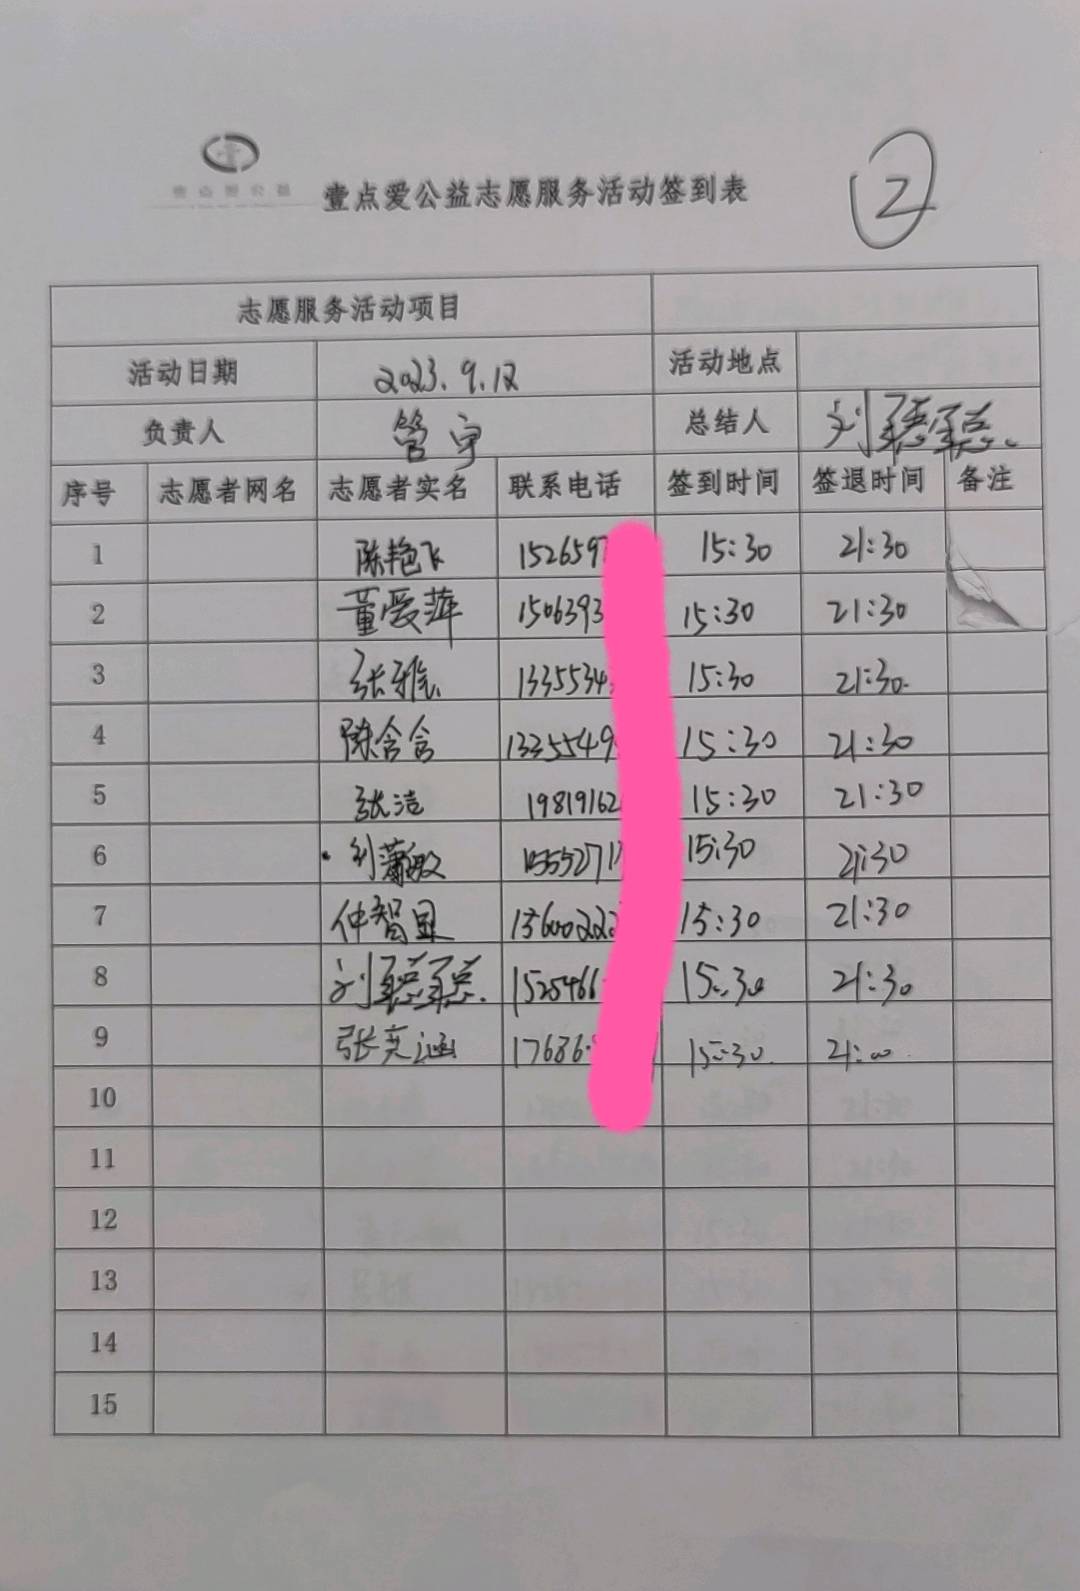 壹点爱公益
壹点爱公益志愿服务活动签到表
2
志愿服务活动项目
活动日期 2023.9.12 活动地点
负责人 管宇 总结人 刘聪聪
序号 志愿者网名 志愿者实名 联系电话 签到时间 签退时间 备注
1 陈艳飞 152659 15:30 21:30
2 董爱萍 1506393 15:30 21:30
3 张雅 1335534 15:30 21:30
4 陈含含 1335549 15:30 21:30
5 张洁 19819162 15:30 21:30
6 刘潇敏 1555271 15:30 21:30
7 仲智显 15600222 15:30 21:30
8 刘聪聪 1525466 15:30 21:30
9 张奕涵 17686 15:30 21:00
10
11
12
13
14
15